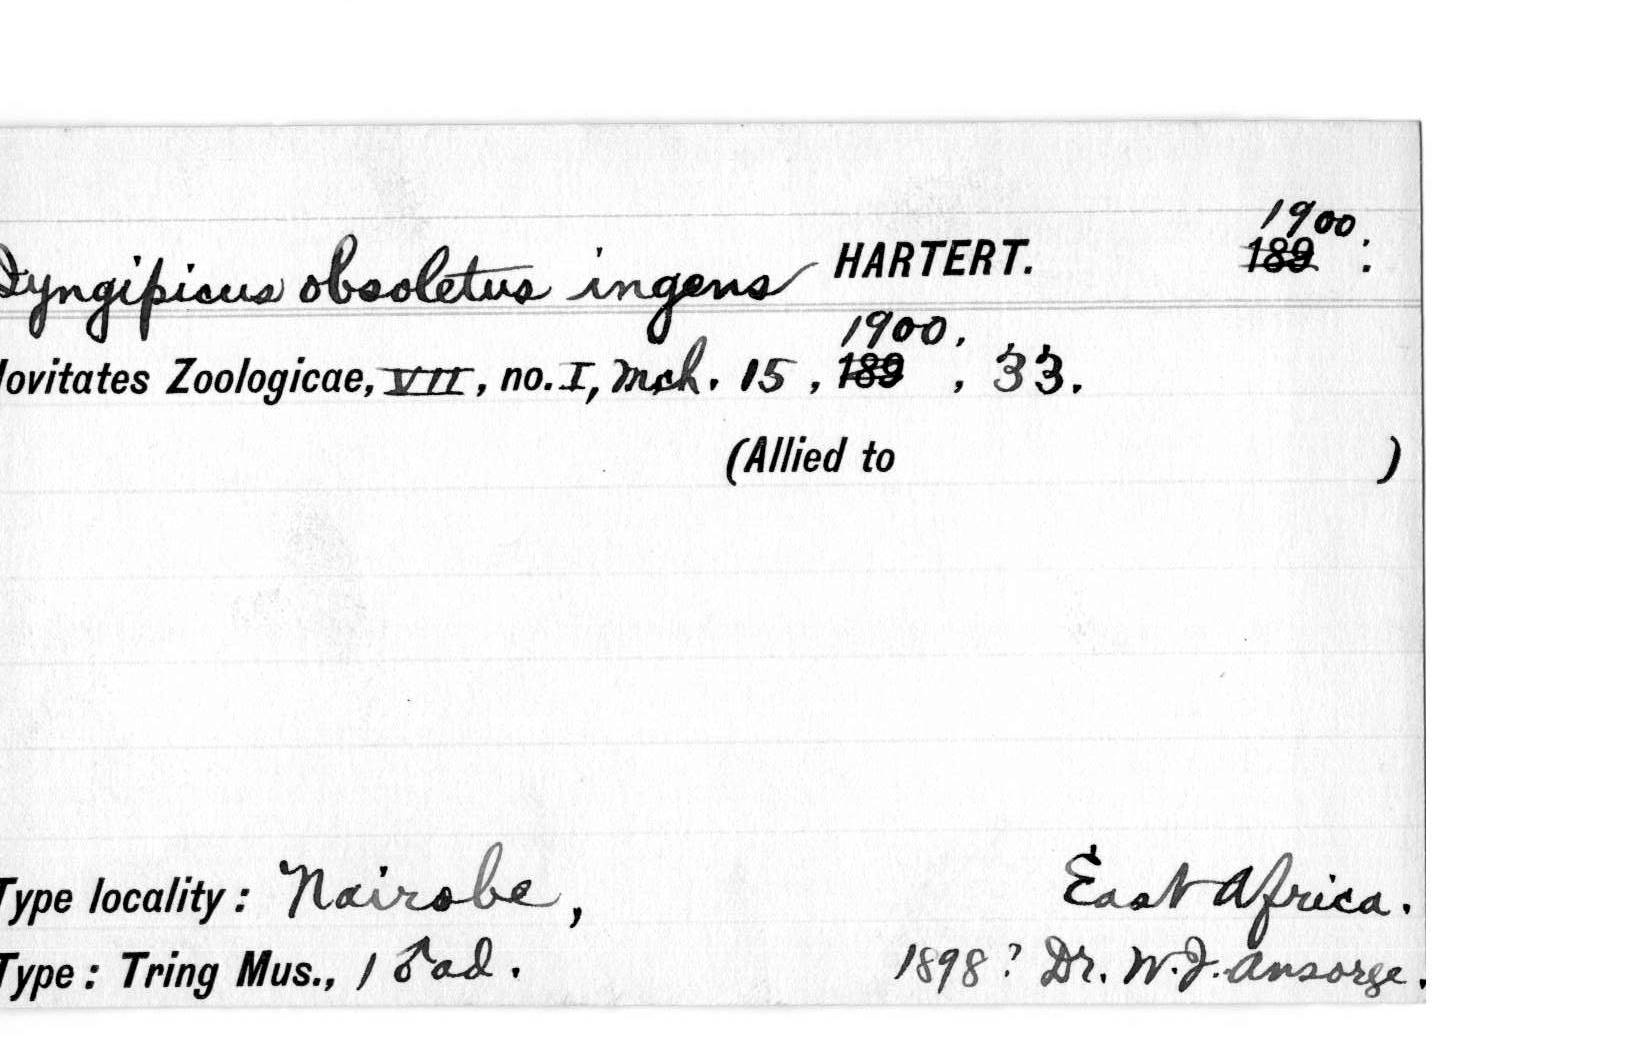 Iyngipicus obsoletus ingens HARTERT. 1900. 189 .
Novitates Zoologicae, VII, no. I, Mch. 15, 1900, 189 , 33.
(Allied to )
Type locality: Nairobe, East Africa.
Type: Tring Mus., 1 ♂ ad. 1898? Dr. W.J. Ansorge.